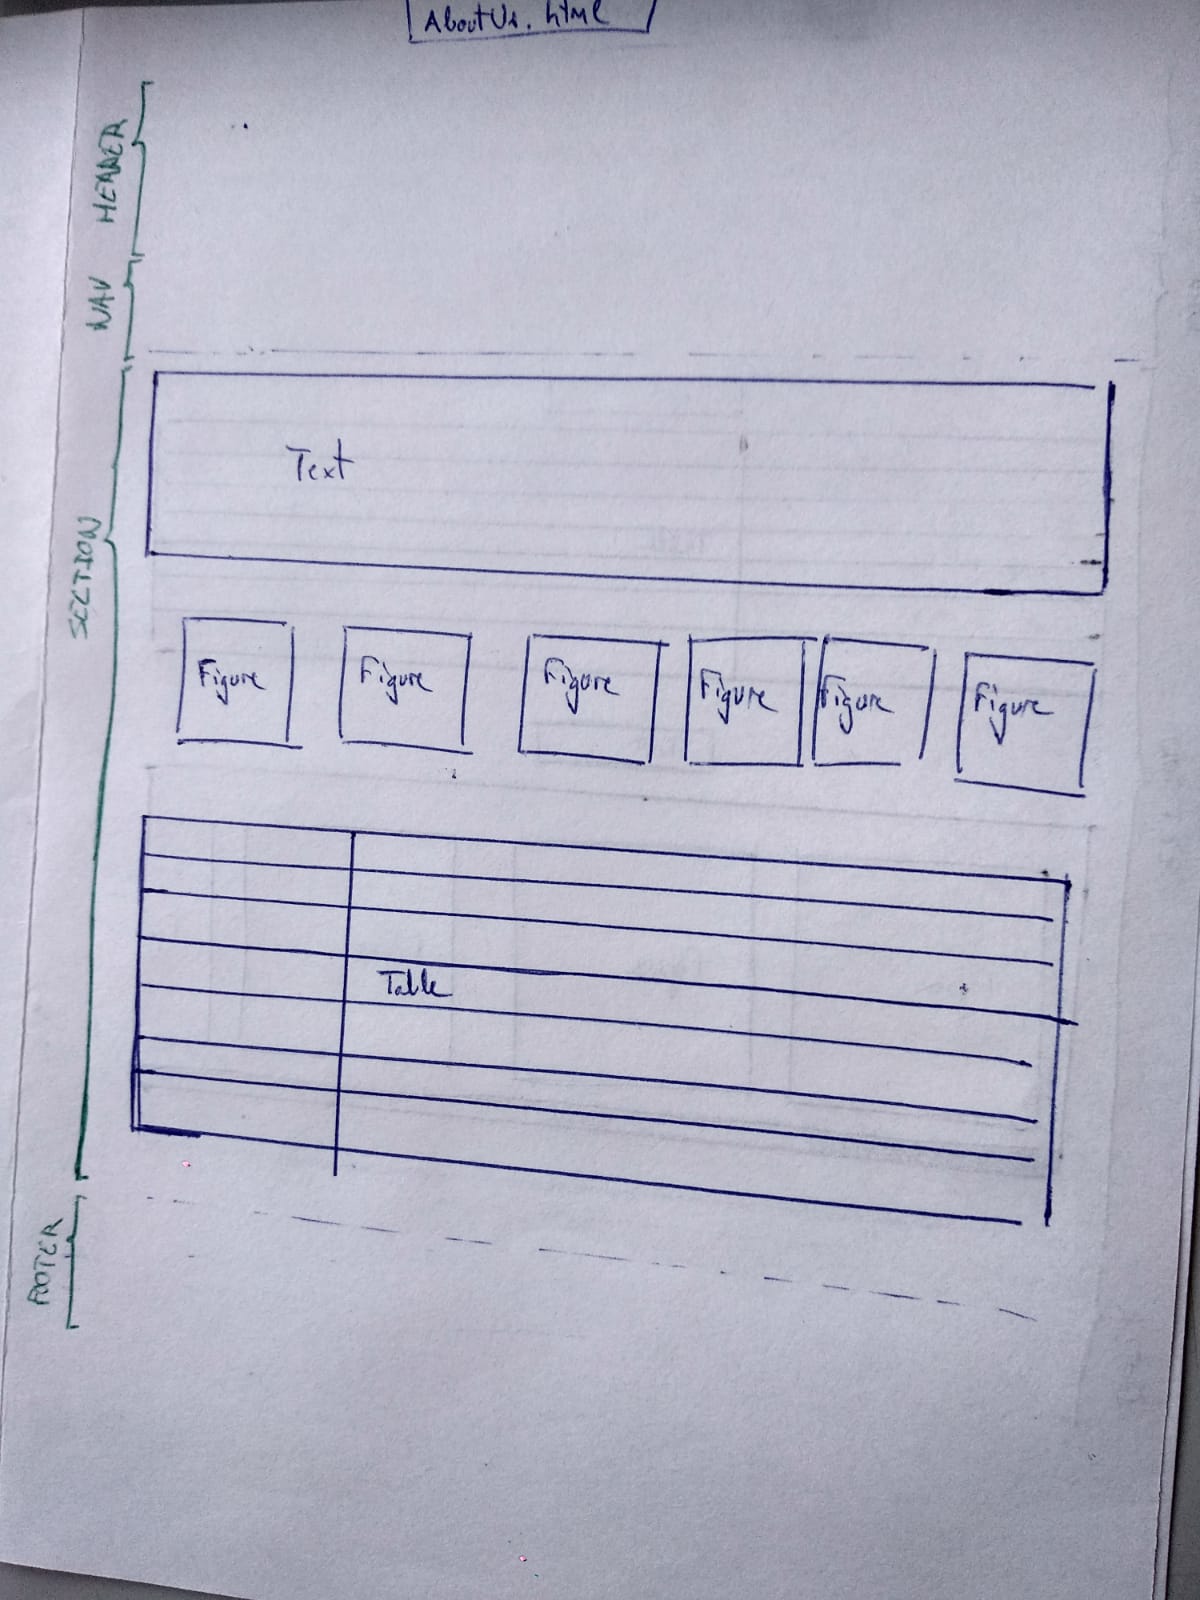 AboutUs.html
HEADER
NAV
SECTION
Text
Figure
Figure
Figure
Figure
Figure
Figure
Table
FOOTER